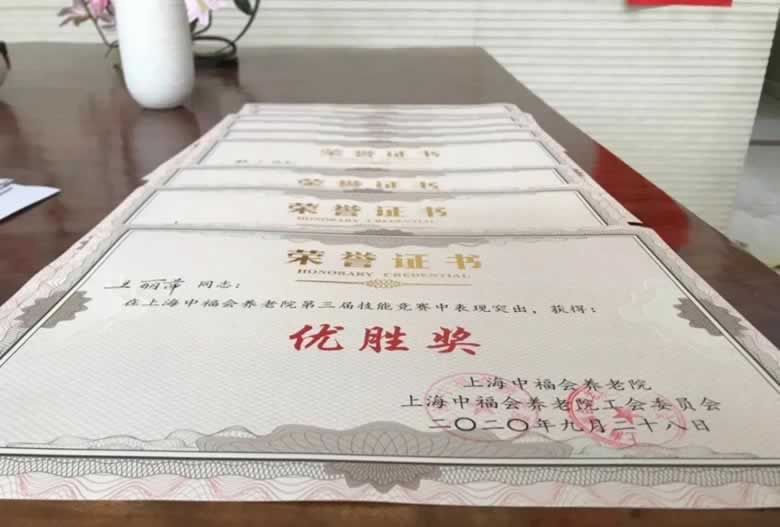 荣誉证书
荣誉证书
荣誉证书
荣誉证书
HONORARY CREDENTIAL
王丽萍 同志:
在上海中福会养老院第三届技能竞赛中表现突出，获得:
优胜奖
上海中福会养老院
上海中福会养老院工会委员会
二〇二〇年九月二十八日